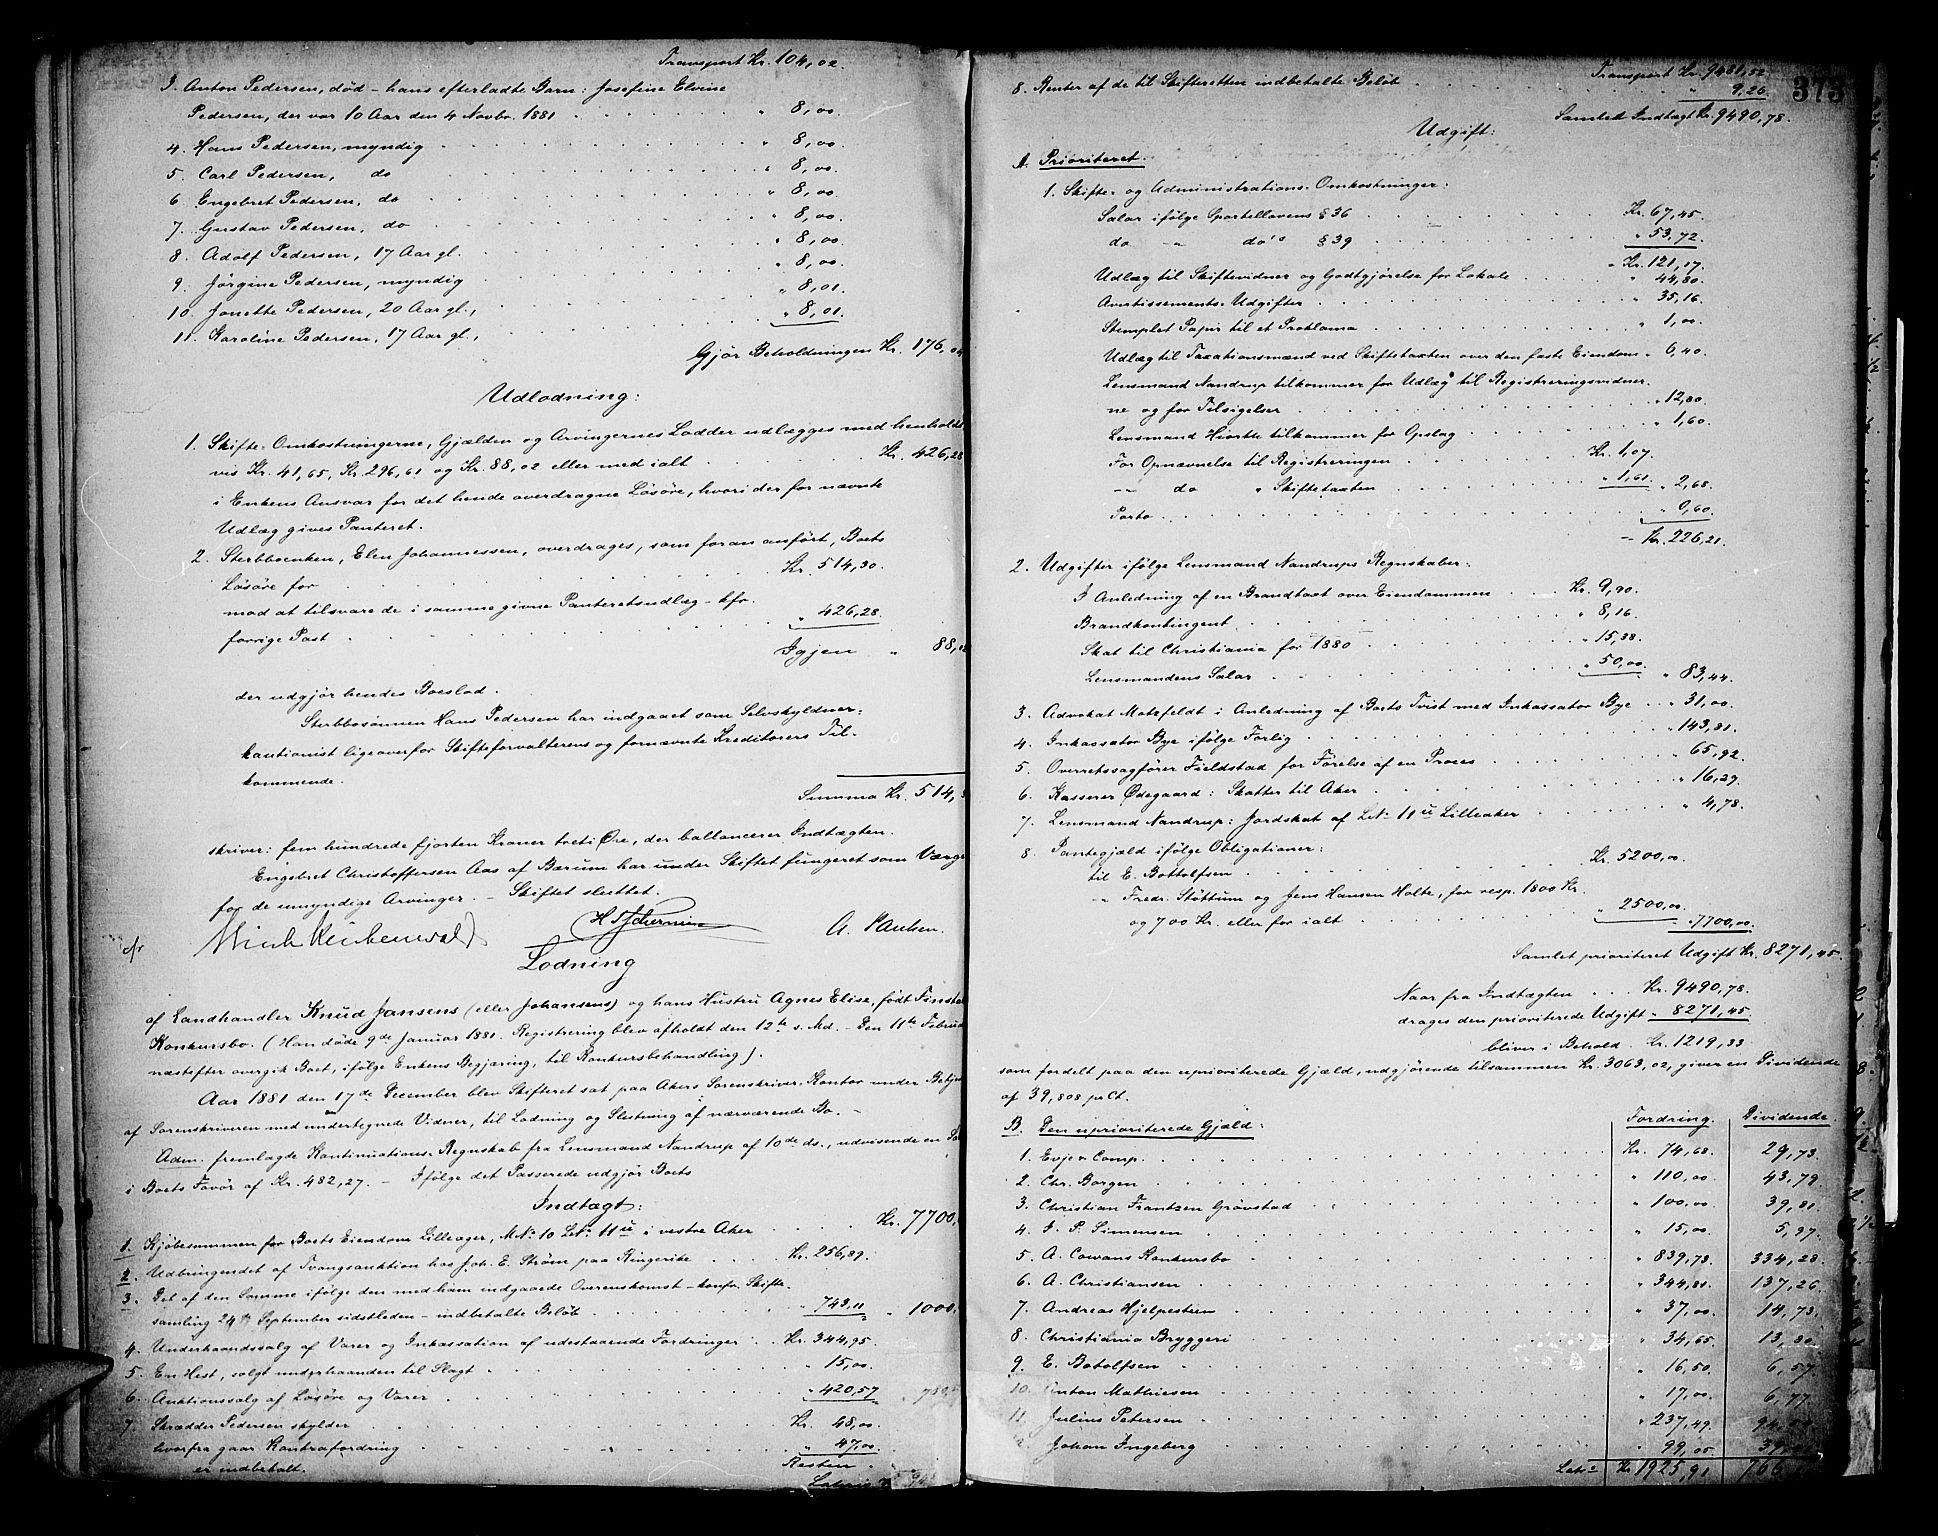 Transport Kr. 104,02.
3. Anton Pedersen, død – hans efterladte Barn: Josefine Elvine
Pedersen, der var 10 Aar den 4 Novbr. 1881 . . . " 8,00.
4. Hans Pedersen, myndig . . . " 8,00.
5. Carl Pedersen, do . . . " 8,00.
6. Engebret Pedersen, do . . . " 8,00.
7. Gustav Pedersen, do . . . " 8,00.
8. Adolf Pedersen, 17 Aar gl. . . . " 8,00.
9. Jørgine Pedersen, myndig . . . " 8,00.
10. Jonette Pedersen, 20 Aar gl., . . . " 8,01.
11. Karoline Pedersen, 17 Aar gl., . . . " 8,01.
Gjør Beholdningen Kr. 176,04
Udlodning:
1. Skifte-Omkostningerne, Gjælden og Arvingernes Lodder udlægges med henholds
vis Kr. 41,65, Kr. 296,61 og Kr. 88,02 eller med ialt . . . Kr. 426,28
i Enkens Ansvar for det hende overdragne Løsøre, hvori der for nævnte
Udlæg gives Panteret.
2. Sterbboenken, Elen Johannessen, overdrages, som foran anført, Boets
Løsøre for . . . Kr. 514,30.
mod at tilsvare de i samme givne Panteretsudlæg – kfr.
forrige Post . . . " 426,28
Igjen " 88,02
der udgjør hendes Boeslod.
Sterbbosønnen Hans Pedersen har indgaaet som Selvskyldner-
kautionist ligeoverfor Skifteforvalterens og fornævnte Kreditorers Til-
kommende.
Summa Kr. 514,3
skriver: fem hundrede fjorten Kroner treti Øre, der ballancerer Indtægten.
Engebret Christoffersen Aas af Bærum har under Skiftet fungeret som Værge
for de umyndige Arvinger. – Skiftet sluttet.
A. Paulsen.
Lodning
af Landhandler Knud Jansens (eller Johansens) og hans Hustru Agnes Elise, født Finstad
Konkursbo. (Han døde 9de Januar 1881. Registrering blev afholdt den 12te s. Md. – Den 11te Februar
næstefter overgik Boet, ifølge Enkens Begjæring, til Konkursbehandling).
Aar 1881 den 17de December blev Skifteret sat paa Akers Sorenskriver-Kontor under Betjen
af Sorenskriveren med undertegnede Vidner, til Lodning og Slutning af nærværende Bo. –
Adm. fremlagde Kontinuations-Regnskab fra Lensmand Nandrup af 10de ds., udvisende en
i Boets Favør af Kr. 482,27. – Ifølge det Passerede udgjør Boets
Indtægt:
1. Kjøbesummen for Boets Eiendom Lilleager, M.No 10 L.No 11u i vestre Aker . . . Kr. 7700,
2. Udbringendet af Tvangsauktion hos Joh. E. Strøm paa Ringerike . . . Kr. 256,89.
3. Del af den Summe ifølge den med ham indgaaede Overenskomst – konfr. Skifte-
samling 24de September sidstleden – indbetalte Beløb . . . " 743,11 " 1000,
4. Underhaandssalg af Varer og Inkassation af udestaaende Fordringer . . Kr. 344,95.
5. En Hest, solgt underhaanden til Slagt . . . " 15,00.
6. Auktionssalg af Løsøre og Varer . . . " 420,57
7. Skrædder Pedersen skylder . . . Kr. 48,00.
hvorfra gaar Kontrafordring . . . " 47,00.
Resten
er indbetalt.
373
Transport Kr. 9481,52.
8. Renter af de til Skifteretten indbetalte Beløb . . . " 9,26
Samlet Indtægt Kr. 9490,78.
Udgift:
A. Prioriteret.
1. Skifte- og Administrations-Omkostninger:
Salær ifølge Sportellovens § 36 . . . Kr. 67,45.
do – " – do's § 39 . . . " 53,72.
" Kr. 121,17.
Udlæg til Skiftevidner og Godtgjørelse for Lokale . . . " 44,80.
Avertissements-Udgifter . . . " 35,16.
Stemplet Papir til et Proklama . . . " 1,00.
Udlæg til Taxationsmænd ved Skiftetaxten over den faste Eiendom " 6,40.
Lensmand Nandrup tilkommer for Udlæg til Registreringsvidner-
ne og for Tilsigelser . . . " 12,80.
Lensmand Hiorth tilkommer for Opslag . . . " 1,60.
For Opnævnelse til Registreringen . . . Kr. 1,07.
– " – do " Skiftetaxten . . . " 1,61 " 2,68.
Porto . . . " 0,60.
– Kr. 226,21.
2. Udgifter ifølge Lensmand Nandrups Regnskaber:
I Anledning af en Brandtaxt over Eiendommen . . . Kr. 9,90.
Brandkontingent . . . " 8,16.
Skat til Christiania for 1880 . . . " 15,38.
Lensmandens Salær . . . " 50,00. " 83,44.
3. Advokat Motzfeldt i Anledning af Boets Tvist med Inkassator Bye . . " 31,00.
4. Inkassator Bye ifølge Forlig . . . " 143,81.
5. Overretssagfører Fieldstad for Førelse af en Proces . . . " 65,92.
6. Kasserer Ødegaard: Skatter til Aker . . . " 16,29.
7. Lensmand Nandrup: Jordskat af L.No 11u Lilleaker . . . " 4,78.
8. Pantegjæld ifølge Obligationer:
til E. Bottolfsen . . . Kr. 5200,00.
– " Fredr. Støttum og Jens Hansen Holte, for resp. 1800 Kr.
og 700 Kr. eller for ialt . . . " 2500,00. " 7700,00.
Samlet prioriteret Udgift Kr. 8271,45.
Naar fra Indtægten . . . Kr. 9490,78.
drages den prioriterede Udgift " 8271,45.
bliver i Behold. Kr. 1219,33
som fordelt paa den uprioriterede Gjæld, udgjørende tilsammen Kr. 3063,02, giver en Dividende
af 39,808 prCt.
B. Den uprioriterede Gjæld: Fordring. Dividende.
1. Evje & Comp. . . . Kr. 74,68. 29,73.
2. Chr. Borgen . . . " 110,00. 43,79.
3. Christian Frantzen Grøvstad . . . " 100,00. 39,81.
4. J. P. Simensen . . . " 15,00. 5,97.
5. A. Cowans Konkursbo . . . " 839,73. 334,28
6. A. Christiansen . . . " 344,81. 137,26
7. Andreas Hjelpesteen . . . " 37,00. 14,73.
8. Christiania Bryggeri . . . " 34,65. 13,80
9. E. Botolfsen . . . " 16,50. 6,57
10. Anton Mathiesen . . . " 17,00. 6,77.
11. Julius Petersen . . . " 237,49.
Johan Ingeberg . . . " 99,05
Kr. 1925,91